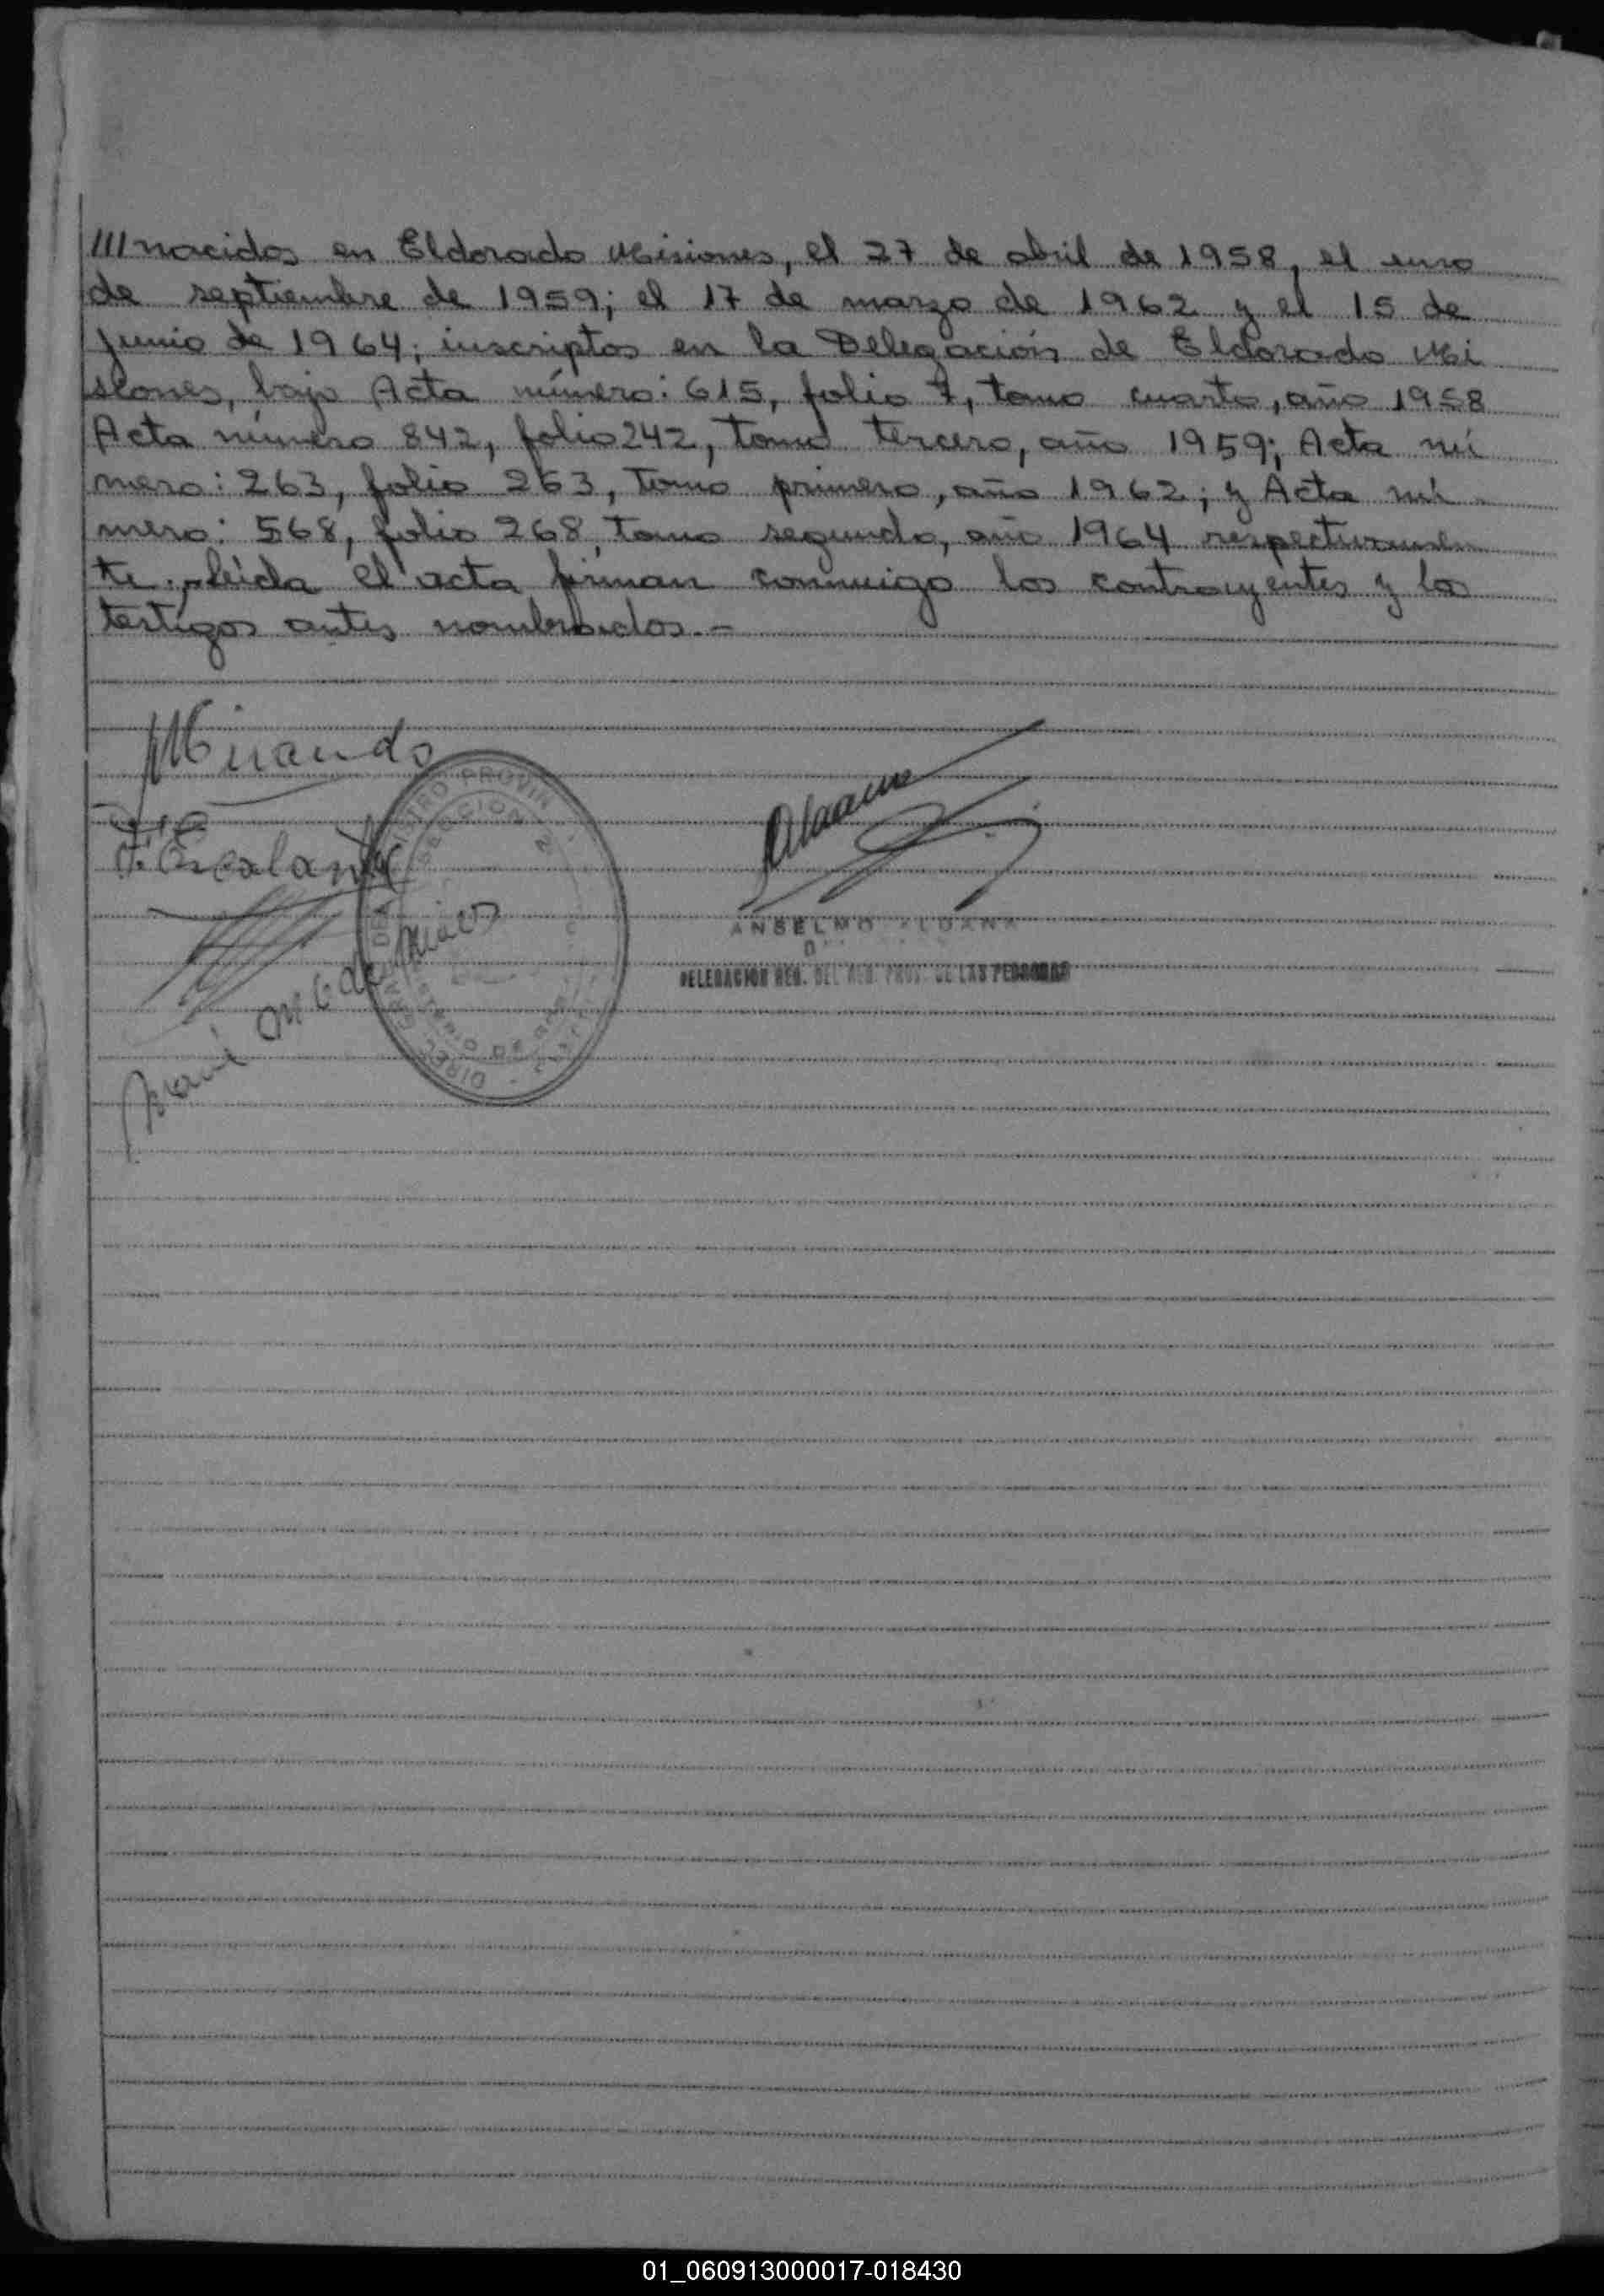 ///nacidos en Eldorado Misiones, el 27 de abril de 1958, el uno
de septiembre de 1959; el 17 de marzo de 1962 y el 15 de
junio de 1964; inscriptos en la Delegación de Eldorado Mi
siones, bajo Acta número: 615, folio 7, tomo cuarto, año 1958
Acta número 842, folio 242, tomo tercero, año 1959; Acta nú
mero: 263, folio 263, tomo primero, año 1962; y Acta nú
mero: 568, folio 268, tomo segundo, año 1964 respectivamen
te.- leída el acta firman conmigo los contrayentes y los
testigos antes nombrados.-
Miranda
F. Escalante
ANSELMO
DELEGACION REG. DEL REG. PROV. DE LAS PERSONAS
SECCION
01_060913000017-018430